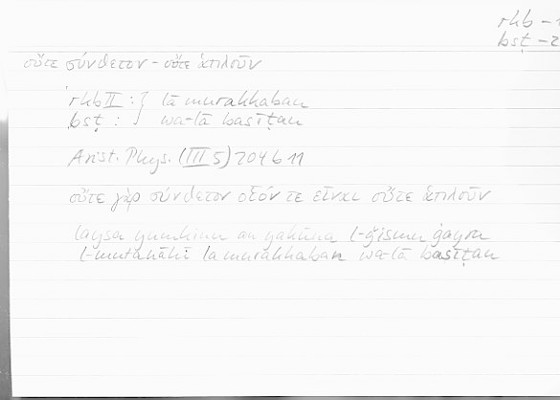 rkb -
bsṭ - 2
οὔτε σύνθετον - οὔτε ἁπλοῦν
rkb II : } lā murakkaban
bsṭ : wa-lā basīṭan
Arist. Phys. (III 5) 204 b 11
οὔτε γὰρ σύνθετον οἷόν τε εἶναι οὔτε ἁπλοῦν
laysa yumkinu an yakūna l-ǧismu ġayru
l-mutanāhī lā murakkaban wa-lā basīṭan